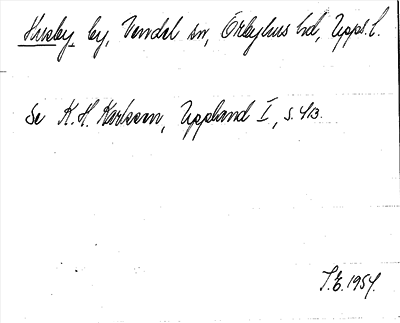 Husby by, Vendel sn, Örbyhus hd, Upps. l.
Se K. H. Karlsson, Uppland I, s. 413.
T.E. 1954.